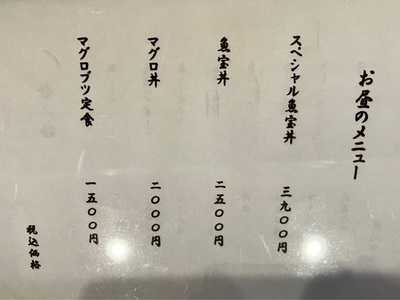 お昼のメニュー
スペシャル魚宝丼 三九〇〇円
魚宝丼 二五〇〇円
マグロ丼 二〇〇〇円
マグロブツ定食 一五〇〇円
税込価格